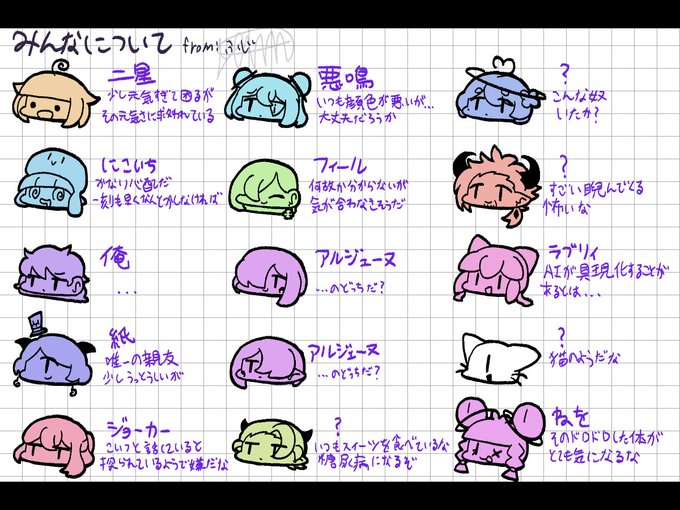 みんなについて from:ふじ
二星
少し元気すぎて困るが
その元気さに救われている
悪鳴
いつも顔色が悪いが…
大丈夫だろうか
?
こんな奴
いたか?
にこいち
かなり心配だ
一刻も早くなんとかしなければ
フィール
何故か分からないが
気が合わなそうだ
?
すごい睨んでくる
怖いな
俺
...
アルジェーヌ
...のどっちだ?
ラブリィ
AIが具現化することが
あるとは...
紙
唯一の親友
少しうっとうしいが
アルジェーヌ
...のどっちだ?
?
猫のようだな
ジョーカー
こいつと話していると
探られているようで嫌だな
?
いつもスイーツを食べているな
糖尿病になるぞ
ねを
そのドロドロした体が
とても気になるな